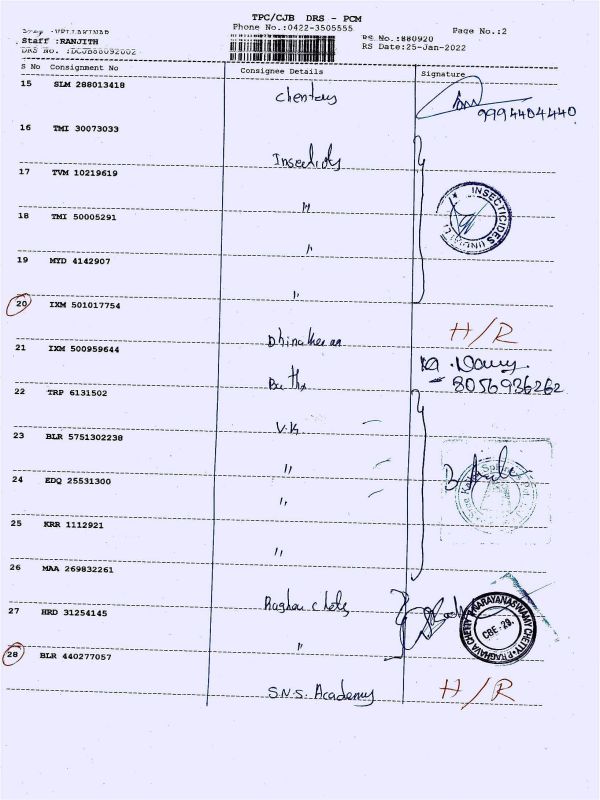 TPC/CJB DRS - PCM
Phone No.:0422-3505555
Page No.:2
Staff :RANJITH
RS No.:880920
DRS No. :DCJB88092002
RS Date:25-Jan-2022
S No Consignment No Consignee Details Signature
15 SLM 288013418
9994404440
16 TMI 30073033
17 TVM 10219619
"
INSECTICIDES
18 TMI 50005291
"
19 MYD 4142907
"
20 IXM 501017754
Dhinakaran H/R
21 IXM 500959644
8056936262
22 TRP 6131502
V.K
23 BLR 5751302238
"
24 EDQ 25531300
"
25 KRR 1112921
"
26 MAA 269832261
Raghav Chetty
27 HRD 31254145
"
P.RAGHAVA CHETTY P.NARAYANASWAMY CHETTY
CBE-29.
28 BLR 440277057
S.N.S. Academy H/R